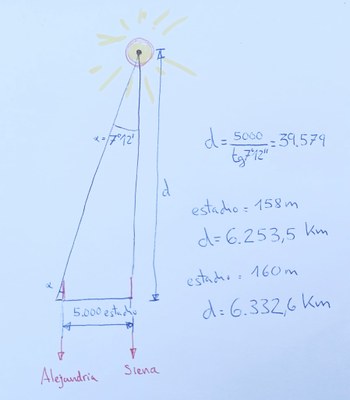 α = 7°12'
d = 5000 / tg 7°12'' = 39.579
d
estadio = 158 m
d = 6.253,5 Km
estadio = 160 m
d = 6.332,6 Km
α
5.000 estadios
Alejandría
Siena